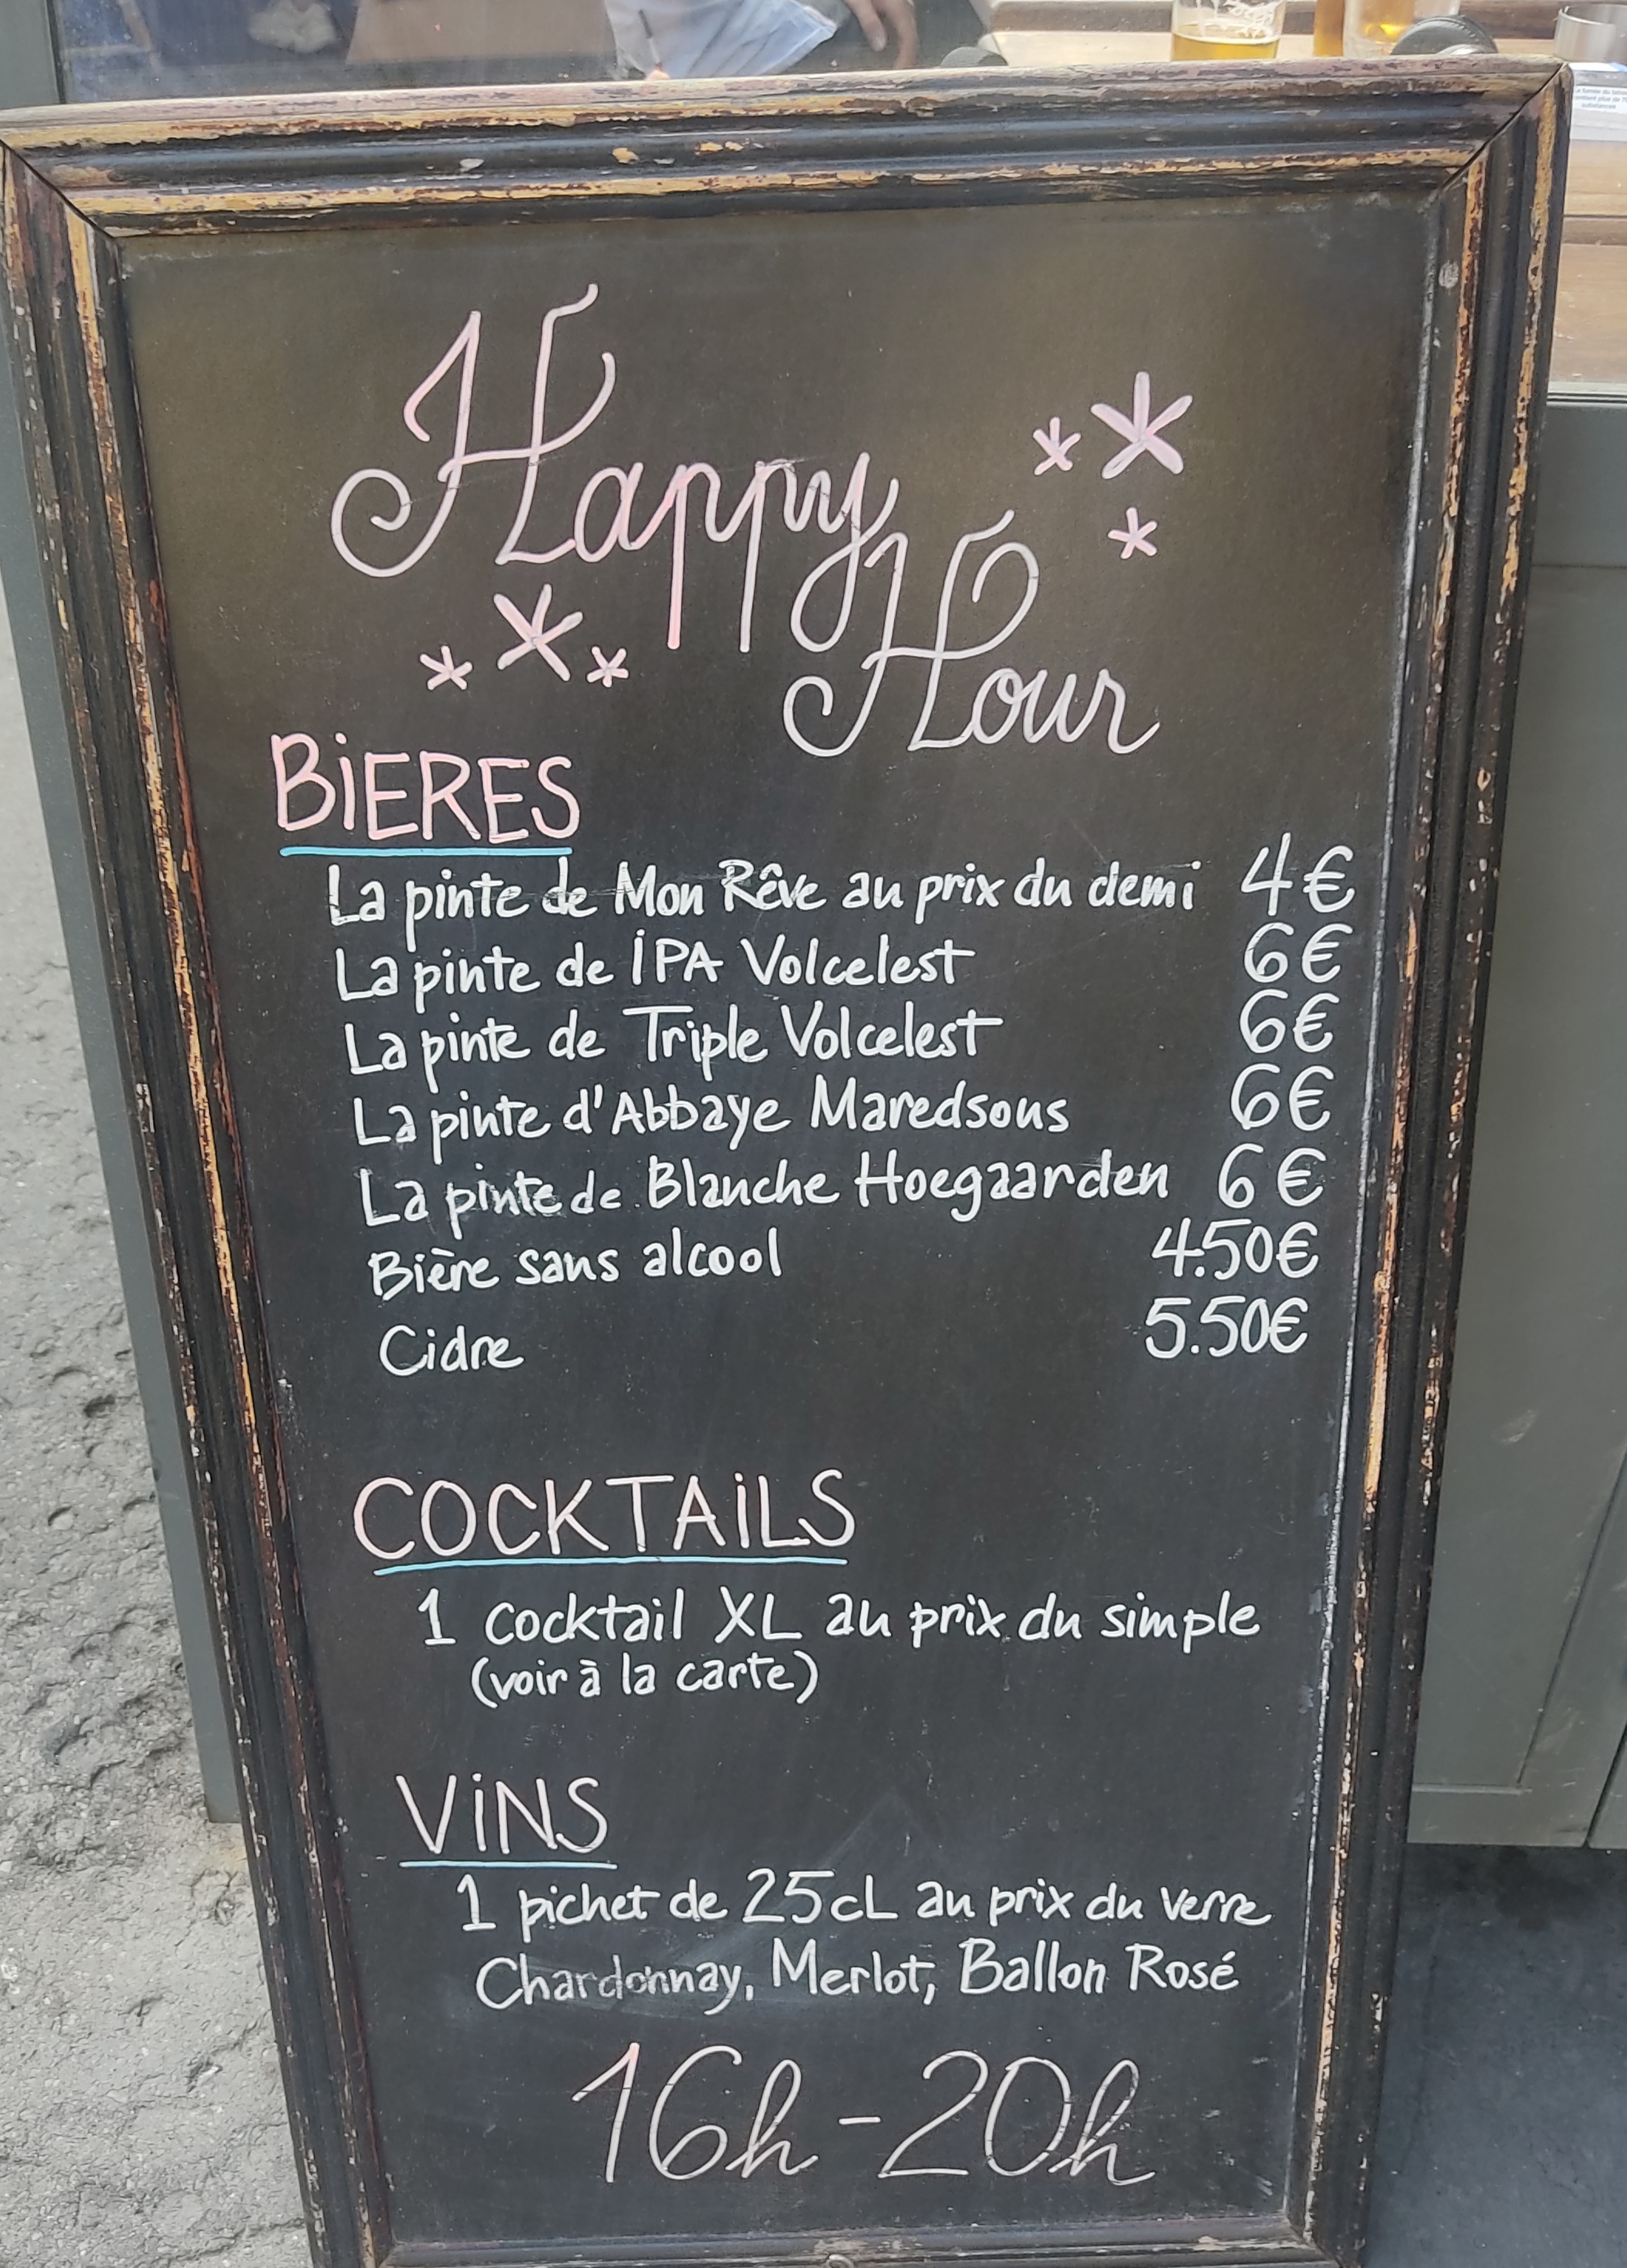 Happy
Hour
BiERES
La pinte de Mon Rêve au prix du demi 4€
La pinte de IPA Volcelest 6€
La pinte de Triple Volcelest 6€
La pinte d'Abbaye Maredsous 6€
La pinte de Blanche Hoegaarden 6€
Bière sans alcool 4.50€
Cidre 5.50€
COCKTAiLS
1 cocktail XL au prix du simple
(voir à la carte)
ViNS
1 pichet de 25cL au prix du verre
Chardonnay, Merlot, Ballon Rosé
16h-20h